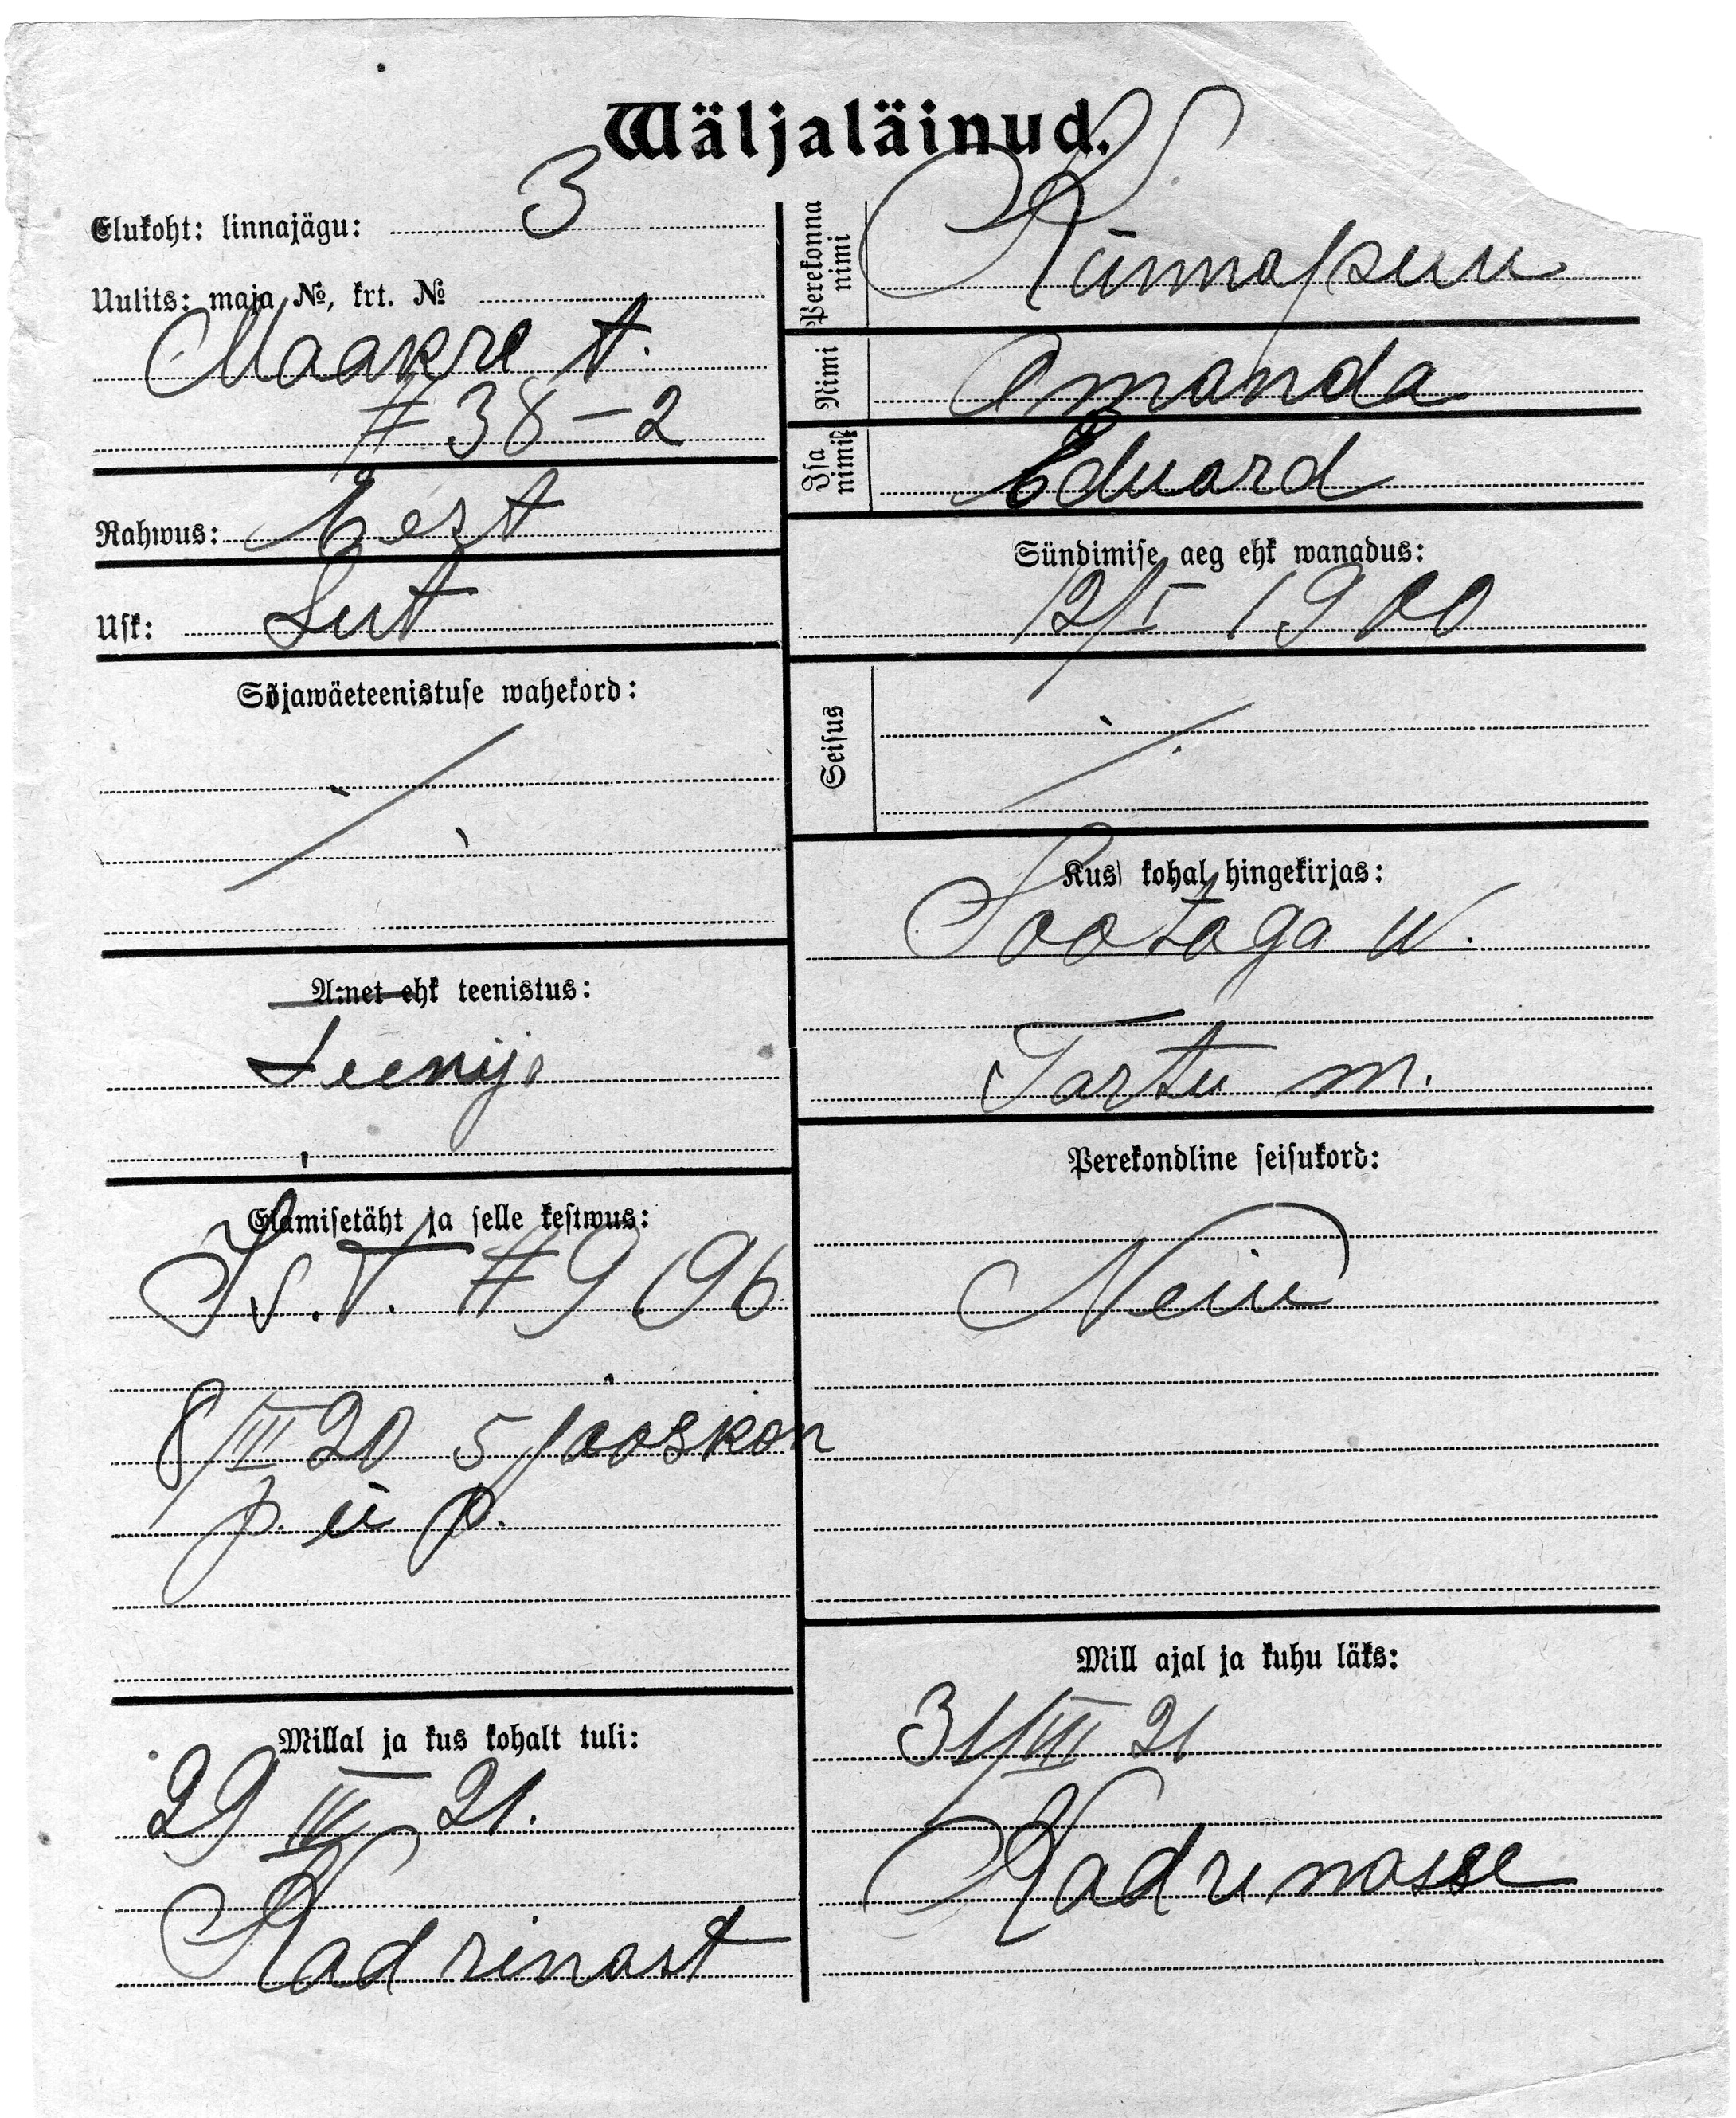 Wäljaläinud.
Elukoht: linnajägu: 3
Uulits: maja №, krt. №
Maakre t.
# 38-2
Rahwus: Eest
Usk: Lut
Sõjawäeteenistuse wahekord:
Amet ehk teenistus:
Teenija
Elamisetäht ja selle kestwus:
Is.T. # 9196
8/III 20 5 jaoskon
p. ü p.
Millal ja kus kohalt tuli:
29 IV 21.
Kadrinast
Perekonna nimi Künnapuu
Nimi Amanda
Isa nimi Eduard
Sündimise aeg ehk wanadus:
12/I 1900
Seisus
Kus kohal hingekirjas:
Sootaga w.
Tartu m.
Perekondline seisukord:
Neiu
Mill ajal ja kuhu läks:
31/VII 21
Kadrinasse